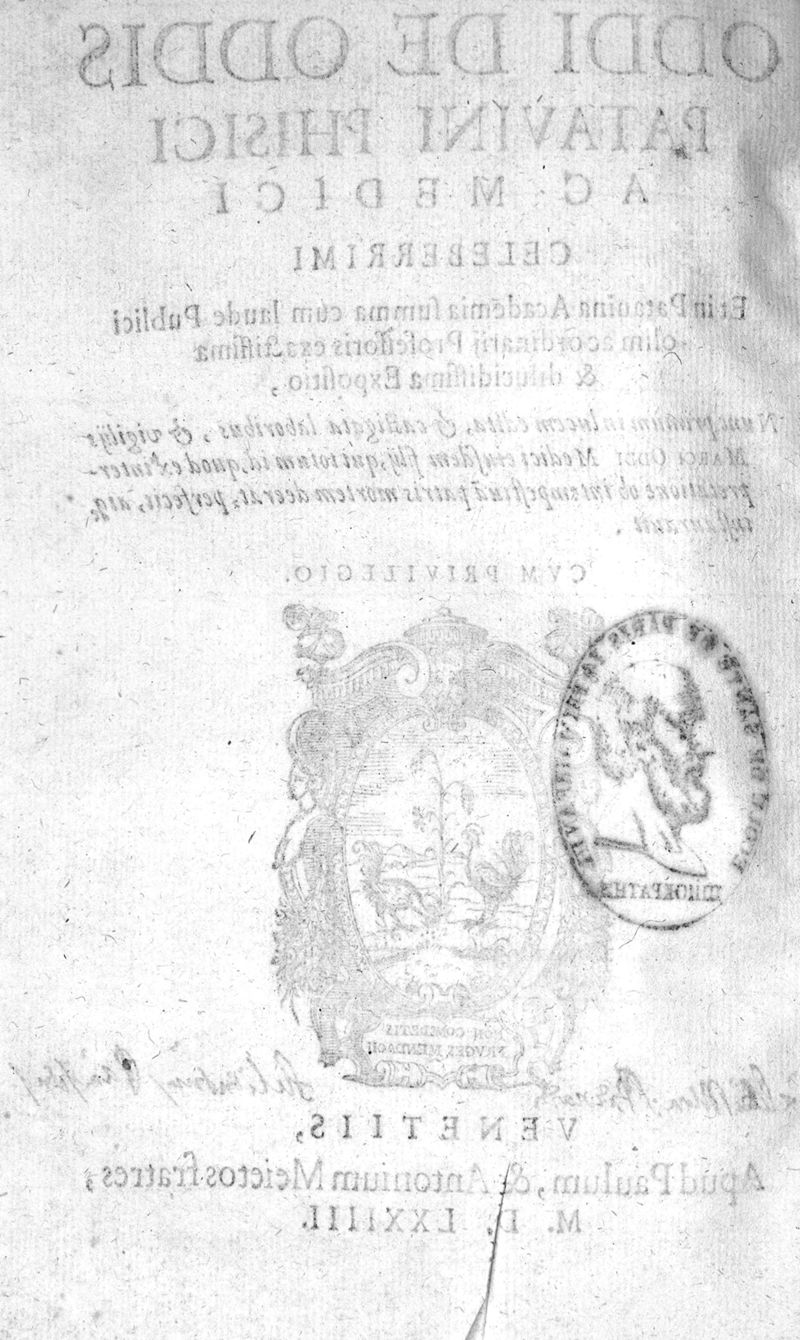 ODDI DE ODDIS
PATAVINI PHISICI
AC MEDICI
CELEBERRIMI
Et in Patauina Academia summa cum laude Publici
olim ac ordinarij Professoris exactissima
& dilucidissima Expositio,
Nunc primum in lucem edita, & castigata laboribus, & vigilijs
MARCI ODDI Medici eiusdem filij, qui totum id, quod ex inter-
pretatione ob intempestiuā patris mortem deerat, perfecit, atq;
instaurauit.
CVM PRIVILEGIO.
ECOLE DE SANTÉ DE PARIS
ΙΠΠΟΚΡΑΤΗΣ
NON COMEDETIS
FRVGES MENDACII
VENETIIS,
Apud Paulum, & Antonium Meietos fratres,
M. D. LXXIIII.